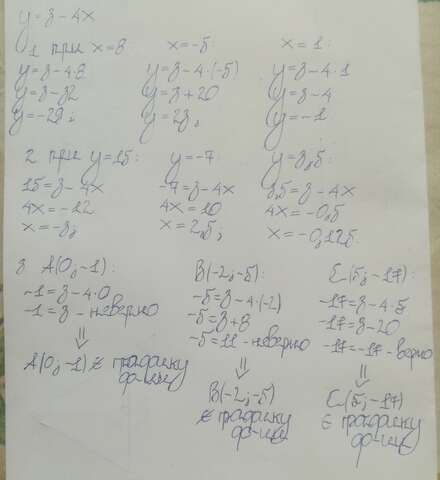 y=3-4x
1 при x=8 x=-5: x=1:
y=3-4·8 y=3-4·(-5) y=3-4·1
y=3-32 y=3+20 y=3-4
y=-29; y=23; y=-1
2 при y=15: y=-7: y=3,5:
15=3-4x -7=3-4x 3,5=3-4x
4x=-12 4x=10 4x=-0,5
x=-3; x=2,5; x=-0,125.
3 A(0;-1): B(-2;-5): C(5;-17):
-1=3-4·0 -5=3-4·(-2) -17=3-4·5
-1=3-неверно -5=3+8 -17=3-20
-5=11-неверно -17=-17-верно
⇓ ⇓ ⇓
A(0;-1)∉ графику ф-ции
B(-2;-5) ∉ графику ф-ции
C(5;-17) ∈ графику ф-ции